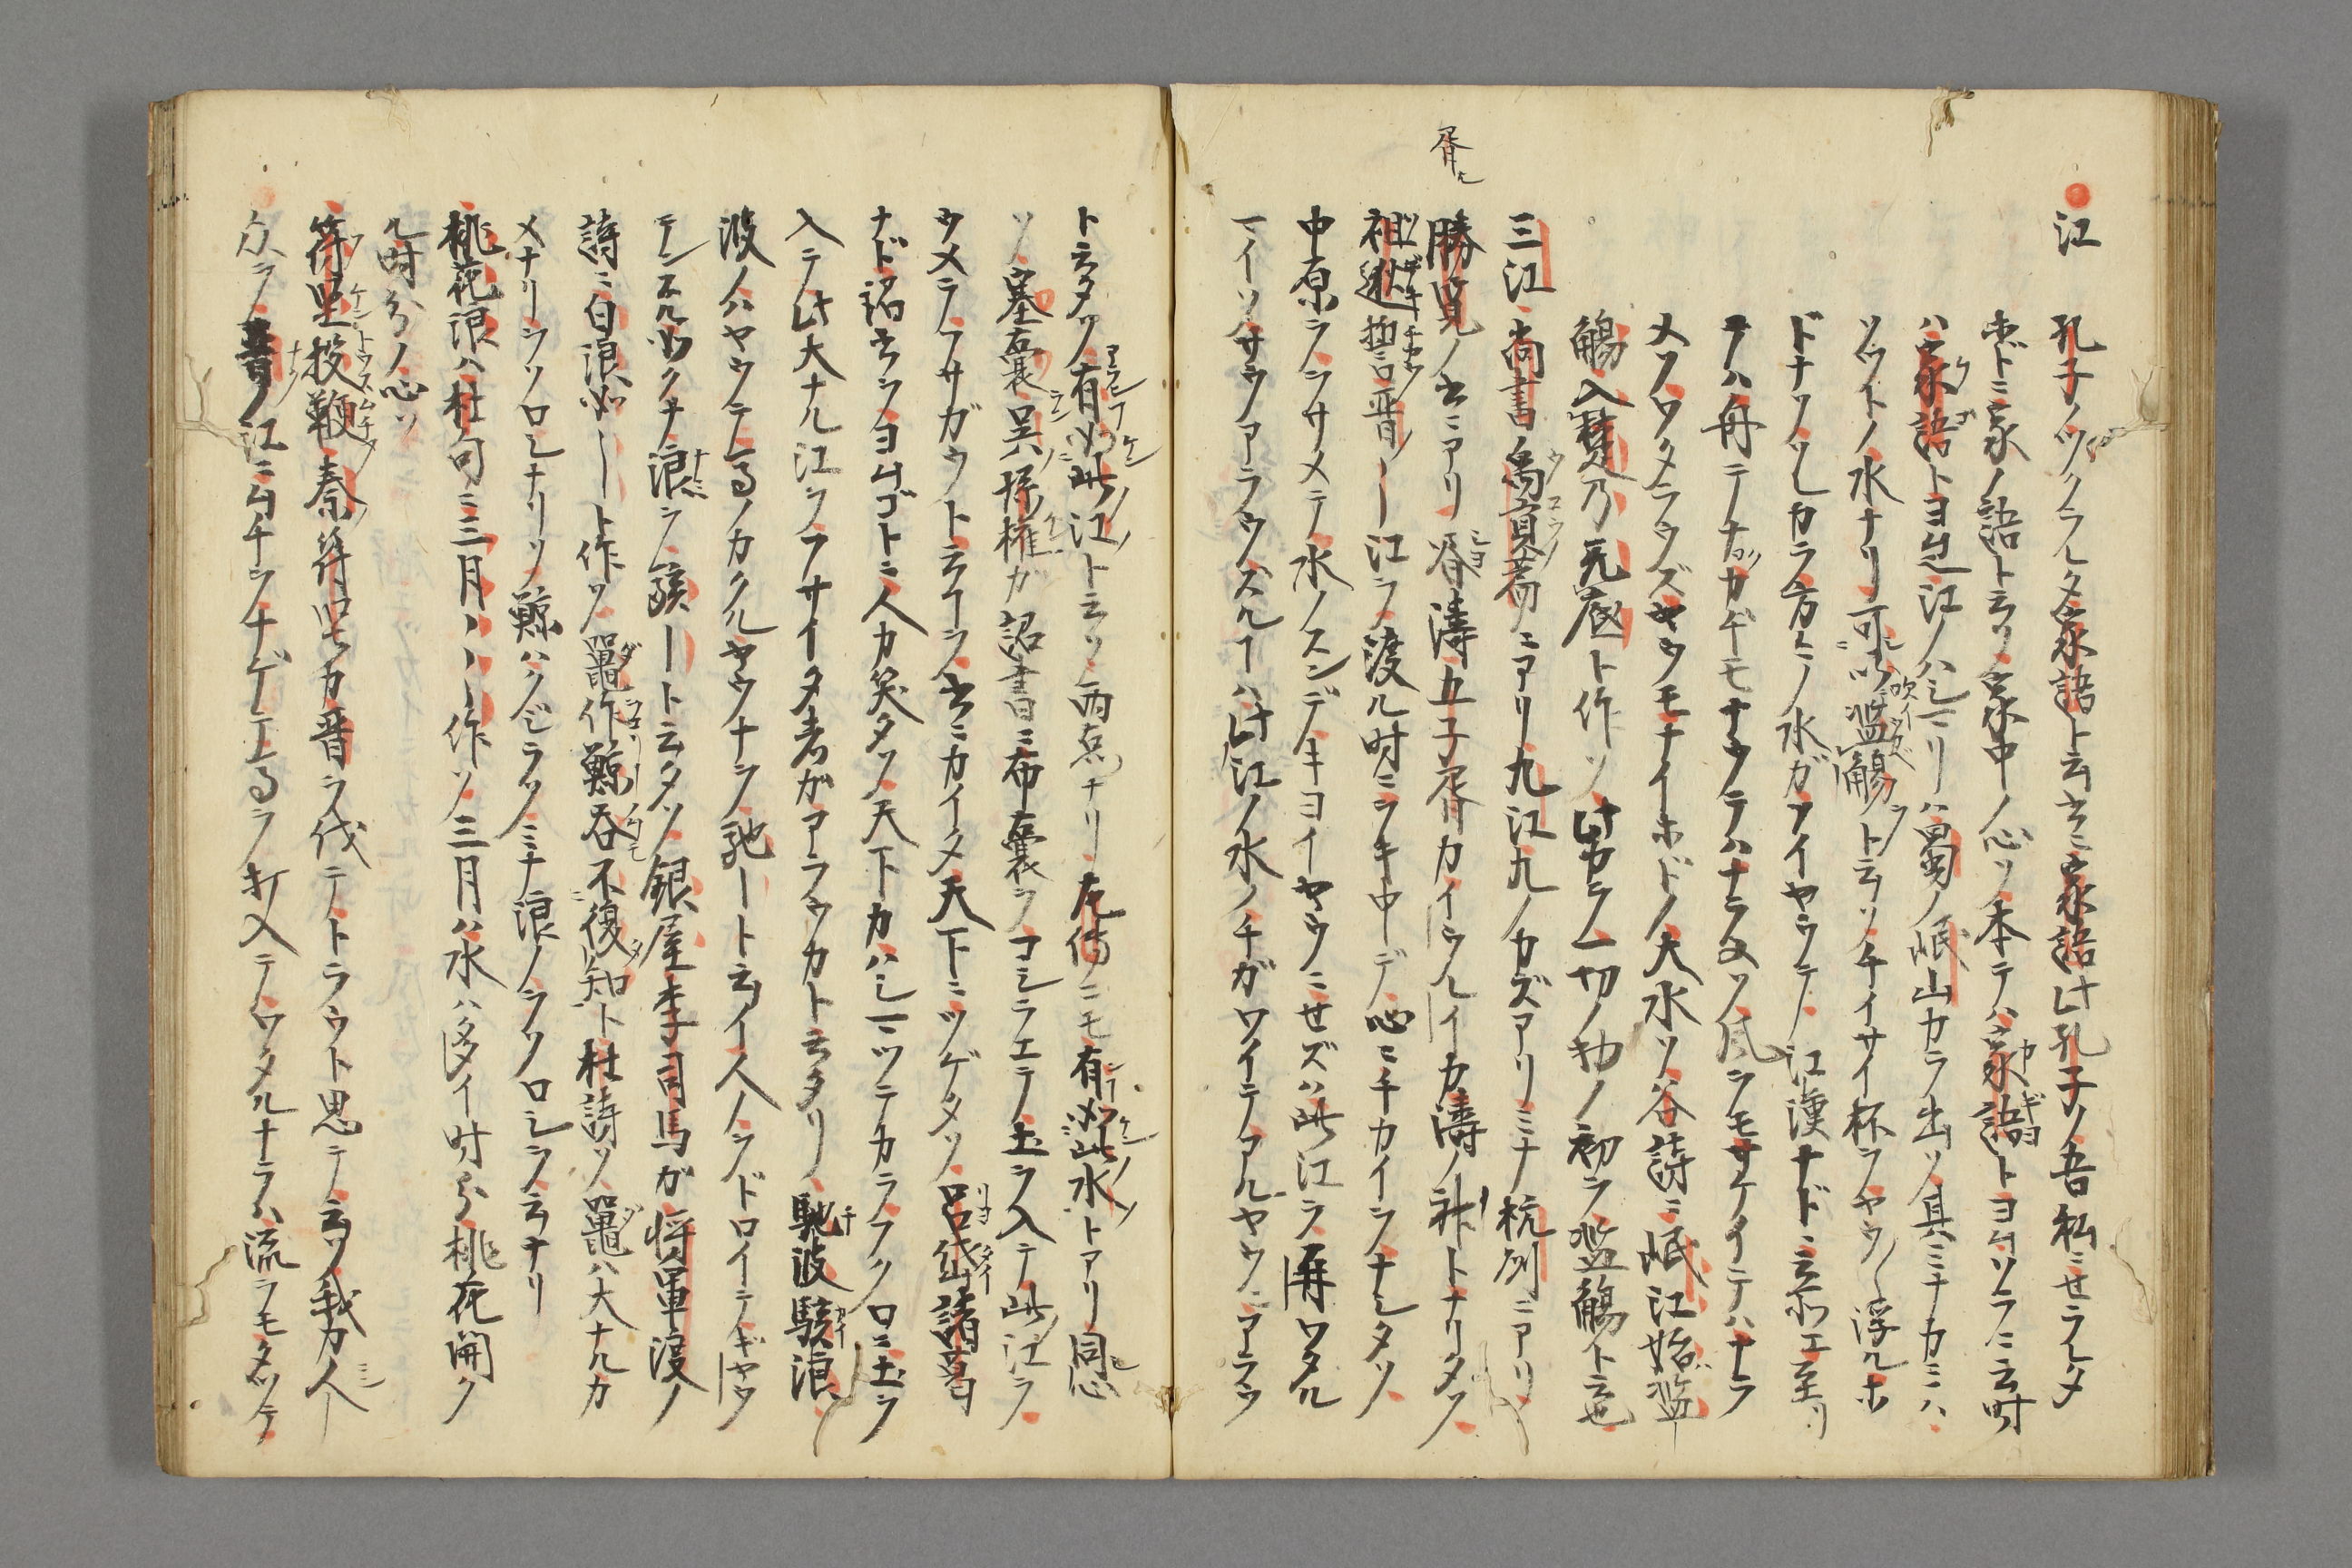 江 孔子ノツクラレタ家語ト云書ニ家語此孔子ノ吾私ニセラレタ
ホドニ家ノ語ト云ソ家中ノ心ソ本テハ家語トヨムソラニ云時
ハ家語トヨム也江ノハシマリハ蜀ノ岷山カラ出ソ其ミナカミハ
ソツトノ水ナリ可以濫觴ト云ソチイサイ杯ラヤウ〱浮ルホ
ドナソレカラ方々ノ水ガソイヤウテ江漢ナドニ云所エ至リ
テハ舟テナカギモナウテハナラヌソ風ラモサケイテハナラ
メソワタラウズヤウモナイホドノ大水ソ谷詩ニ岷江始濫
觴入楚乃無底ト作ソ此カラ一切ノ物ノ初ラ濫觴ト云也
三江尚書禹貢荊ニアリ九江九ノカズアリミナ杭州ニアリ
勝覧ノ書ニアリ 胥濤伍子胥カイウレイカ濤ノ神トナリタソ
胥ハ
祖逖 晋ノ江ラ渡ル時ニラキ中デ心ニチカイラナシタソ
中原ラシサメテ水ノスンデキヨイヤウニせズハ此江ラ再ワタル
マイソサウアラウズルコハ此江ノ水ノチガワイテアルヤウニアラウ
ト云タソ有如此江ト云ソ両点ナリ左傳ニモ有如此水トアリ同心
ソ塞嚢呉孫権ガ詔書ニ布嚢ラコシラエテ土ラ入テ此江ラ
ウメラフサガウト云コラ書ニカイタ天下ニツゲタソ呂岱諸葛
ナド詔書ラヨムゴトニ人カ笑タソ天下カハシマツテカラフクロニ土ラ
入テ此大ナル江ラフサイタ者ガアラウカト云タリ馳波駭浪
波ノハヤウテ馬ノカクルヤウナラ馳ート云イ人ノラドロイテギヤウ
テンスル如クナ浪ラ駭ート云タソ銀屋李司馬が将軍渡ノ
詩ニ白浪如ート作ソ 鼉作鯨呑不復知ト杜詩ソ鼉ハ大ナルカ
メナリーソロシナリソ鯨ハクジラソミナ浪ノラソロシラ云ナリ
桃花浪ハ杜句ニ三月ーーー作ソ三月ハ水ハ多イ時分桃花開ク
ル時分ノ心ソ
符堅投鞭秦ノ符堅カ晋ラ伐テトラウト思テ云ソ我カ人
衆ラノ晋ノ江ニムチラナゲエ馬ラ打入テワタルナラハ流ラモタツテ